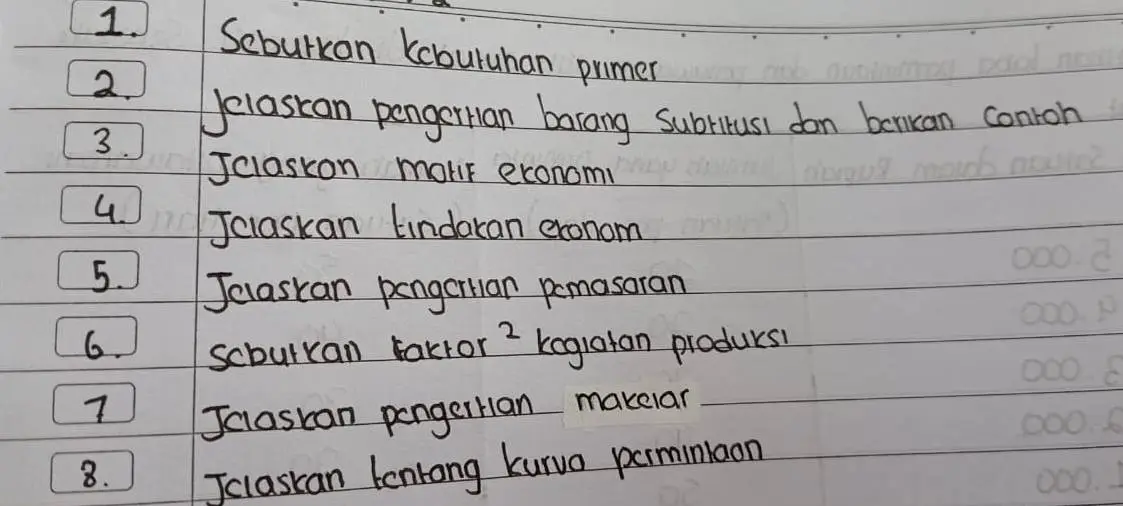 1. Sebutkan kebutuhan primer
2. Jelaskan pengertian barang Subtitusi dan berikan Contoh
3. Jelaskan motif ekonomi
4. Jelaskan tindakan ekonom
5. Jelaskan pengertian pemasaran
6. Sebutkan faktor² kegiatan produksi
7 Jelaskan pengertian makelar
8. Jelaskan tentang kurva permintaan